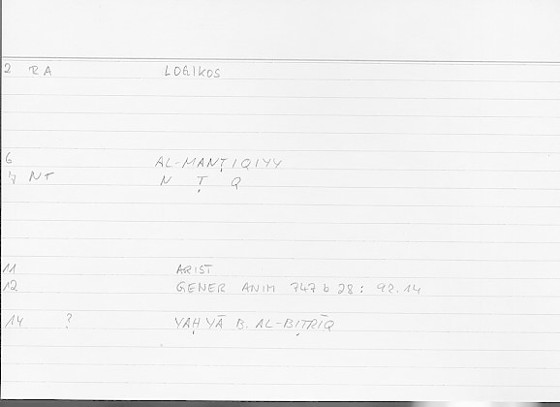 2 RA LOGIKOS
6 AL-MANṬIQIYY
7 NT N Ṭ Q
11 ARIST
12 GENER ANIM 747 b 28 : 92.14
14 ? YAḤYĀ B. AL-BIṬRĪQ